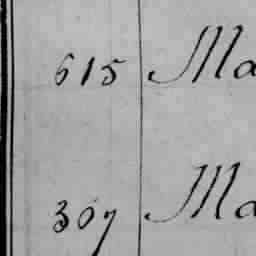 615 Ma
307 Ma